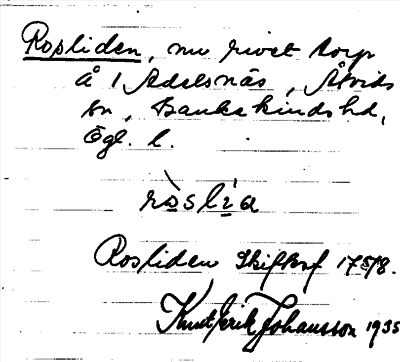 Rosliden, nu rivet torp
å 1 Adelsnäs, Åtvids
sn, Bankekinds hd,
Ögl. l.
ròslı̀a
Rosliden Skifts 1758.
Knut Erik Johansson 1935